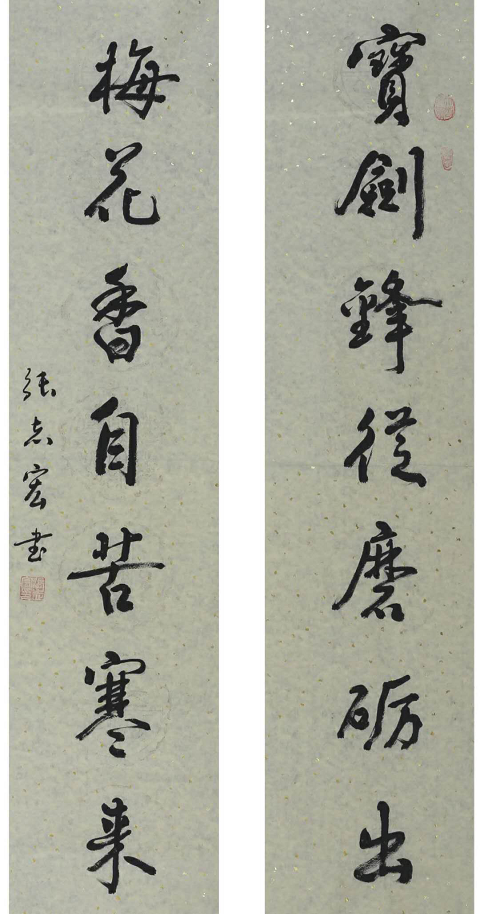 寶劍鋒從磨砺出
梅花香自苦寒来
張志宏書